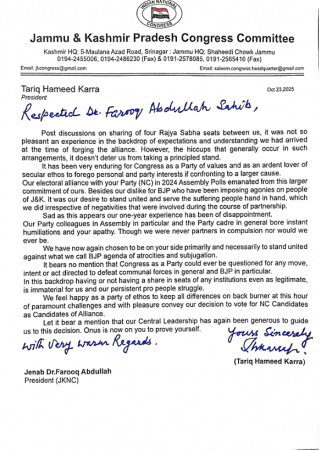 INDIAN NATIONAL
CONGRESS
Jammu & Kashmir Pradesh Congress Committee
Kashmir HQ: 5-Maulana Azad Road, Srinagar : Jammu HQ: Shaheedi Chowk Jammu
0194-2455006, 0194-2486230 (Fax) & 0191-2578085, 0191-2565410 (Fax)
Email: jkcongress@gmail.com Email: saleem.congress.headquarter@gmail.com
Tariq Hameed Karra Oct 23,2025
President
Respected Dr. Farooq Abdullah Sahib,
Post discussions on sharing of four Rajya Sabha seats between us, it was not so
pleasant an experience in the backdrop of expectations and understanding we had arrived
at the time of forging the alliance. However, the hiccups that generally occur in such
arrangements, it doesn't deter us from taking a principled stand.
It has been very enduring for Congress as a Party of values and as an ardent lover of
secular ethos to forego personal and party interests if confronting to a larger cause.
Our electoral alliance with your Party (NC) in 2024 Assembly Polls emanated from this larger
commitment of ours. Besides our dislike for BJP who have been imposing agonies on people
of J&K. It was our desire to stand united and serve the suffering people hand in hand, which
we did irrespective of negativities that were involved during the course of partnership.
Sad as this appears our one-year experience has been of disappointment.
Our Party colleagues in Assembly in particular and the Party cadre in general bore instant
humiliations and your apathy. Though we were never partners in compulsion nor would we
ever be.
We have now again chosen to be on your side primarily and necessarily to stand united
against what we call BJP agenda of atrocities and subjugation.
It bears no mention that Congress as a Party could ever be questioned for any move,
intent or act directed to defeat communal forces in general and BJP in particular.
In this backdrop having or not having a share in seats of any institutions even as legitimate,
is immaterial for us and our persistent pro people struggle.
We feel happy as a party of ethos to keep all differences on back burner at this hour
of paramount challenges and with pleasure convey our decision to vote for NC Candidates
as Candidates of Alliance.
Let it bear a mention that our Central Leadership has again been generous to guide
us to this decision. Onus is now on you to prove yourself.
With Very warm Regards. Yours Sincerely
(Tariq Hameed Karra)
Jenab Dr.Farooq Abdullah
President (JKNC)